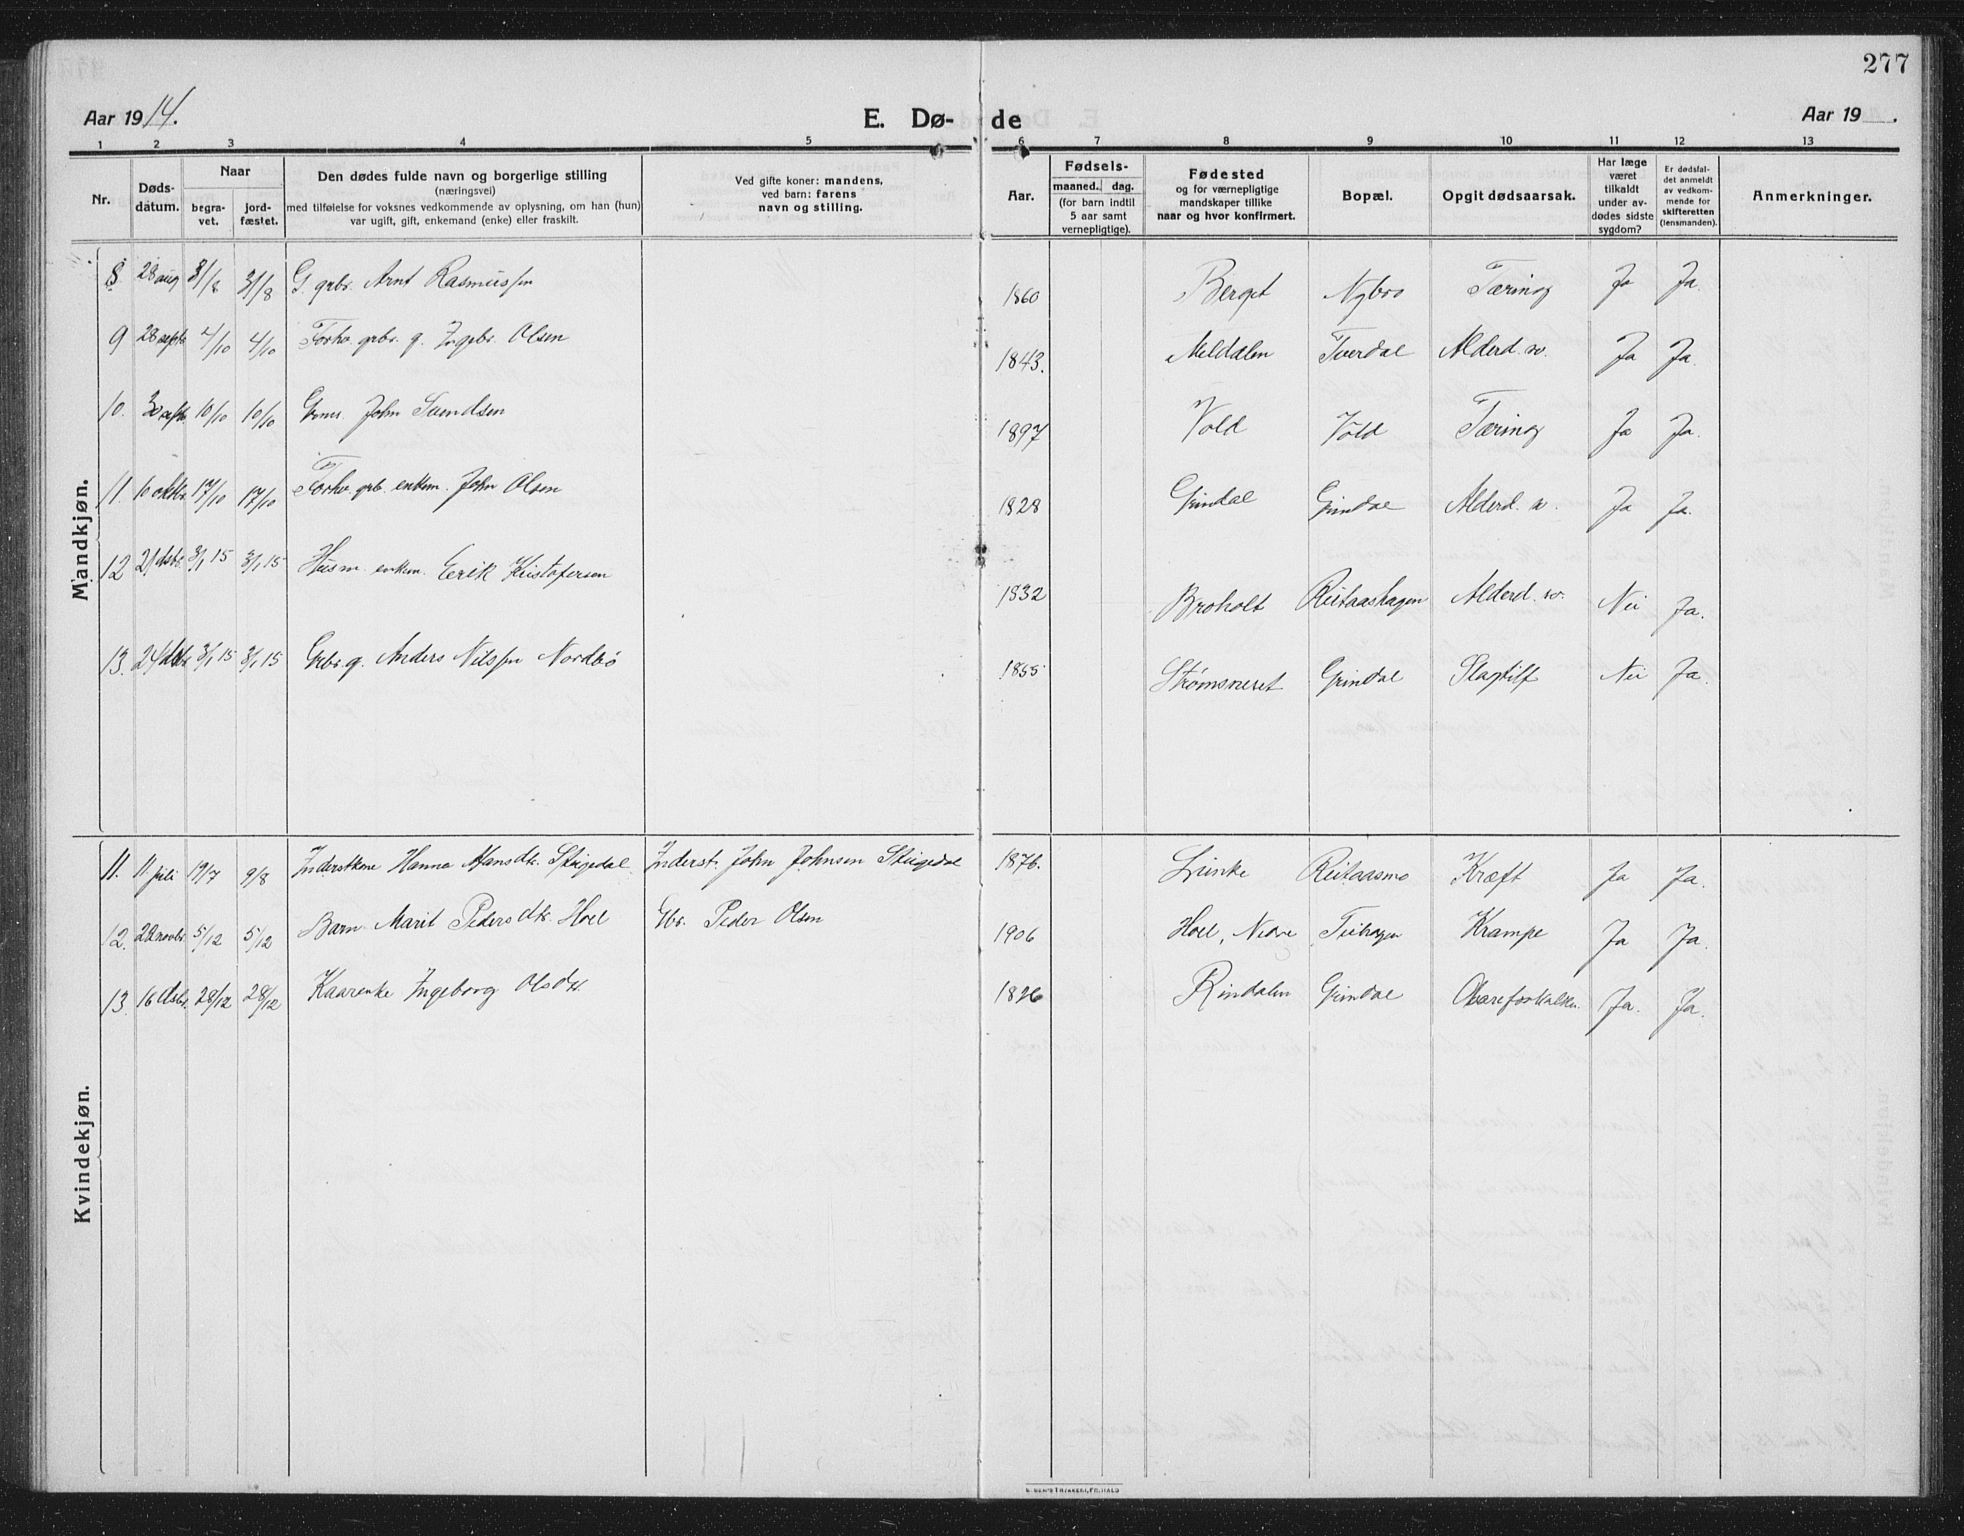 277
Aar 1914. E. Dø- de Aar 19 .
1 2 3 4 5 6 7 8 9 10 11 12 13
Nr. Døds-datum. Naar begra-vet. jord-fæstet. Den dødes fulde navn og borgerlige stilling (næringsvei) med tilføielse for voksnes vedkommende av oplysning, om han (hun) var ugift, gift, enkemand (enke) eller fraskilt. Ved gifte koner: mandens, ved barn: farens navn og stilling. Aar. Fødsels- maaned. dag. (for barn indtil 5 aar samt vernepligtige). Fødested og for værnepligtige mandskaper tillike naar og hvor konfirmert. Bopæl. Opgit dødsaarsak. Har læge været tilkaldt under av-dødes sidste sygdom? Er dødsfal-det anmeldt av vedkom-mende for skifteretten (lensmanden). Anmerkninger.
Mandkjøn.
8 28 aug 31/8 31/8 G. grbr. Arnt Rasmussen 1860 Berget Nybro Tæring Ja Ja.
9 28 septr 4/10 4/10 Forhv. grbr. g. Ingebr. Olsen 1843. Meldalen Tverdal Alderd. sv. Ja Ja.
10. 30 septr 10/10 10/10 Grmr. John Svendsen 1897 Vold Vold Tæring Ja Ja.
11 10 oktbr 17/10 17/10 Forhv. grb. enkem. John Olsen 1828 Grindal Grindal Alderd. sv. Ja Ja.
12 21 dsbr. 3/1 15 3/1 15 Husm. enkem. Erik Kristofersen 1832 Broholt Reitaashagen Alderd. sv. Nei Ja.
13. 24 dsbr 3/1 15 3/1 15 Grbr. g. Anders Nilssen Nordbø 1855 Strømsøret Grindal Slagtilf Nei Ja.
Kvindekjøn.
11. 11 juli 19/7 9/8 Inderstkone Hanna Hansdtr. Stigedal. Inderst. John Johnsen Stigedal 1876. Reitaasmo Kræft Ja Ja.
12. 22 novbr. 5/12 5/12 Barn Marit Pedersdtr. Hoel Gbr. Peder Olsen 1906 Hoel, Nedre Krampe Ja Ja.
13. 16 dsbr. 28/12 28/12 Kaarenke Ingeborg Olsdtr 1826 Rindalen Grindal Ja. Ja.